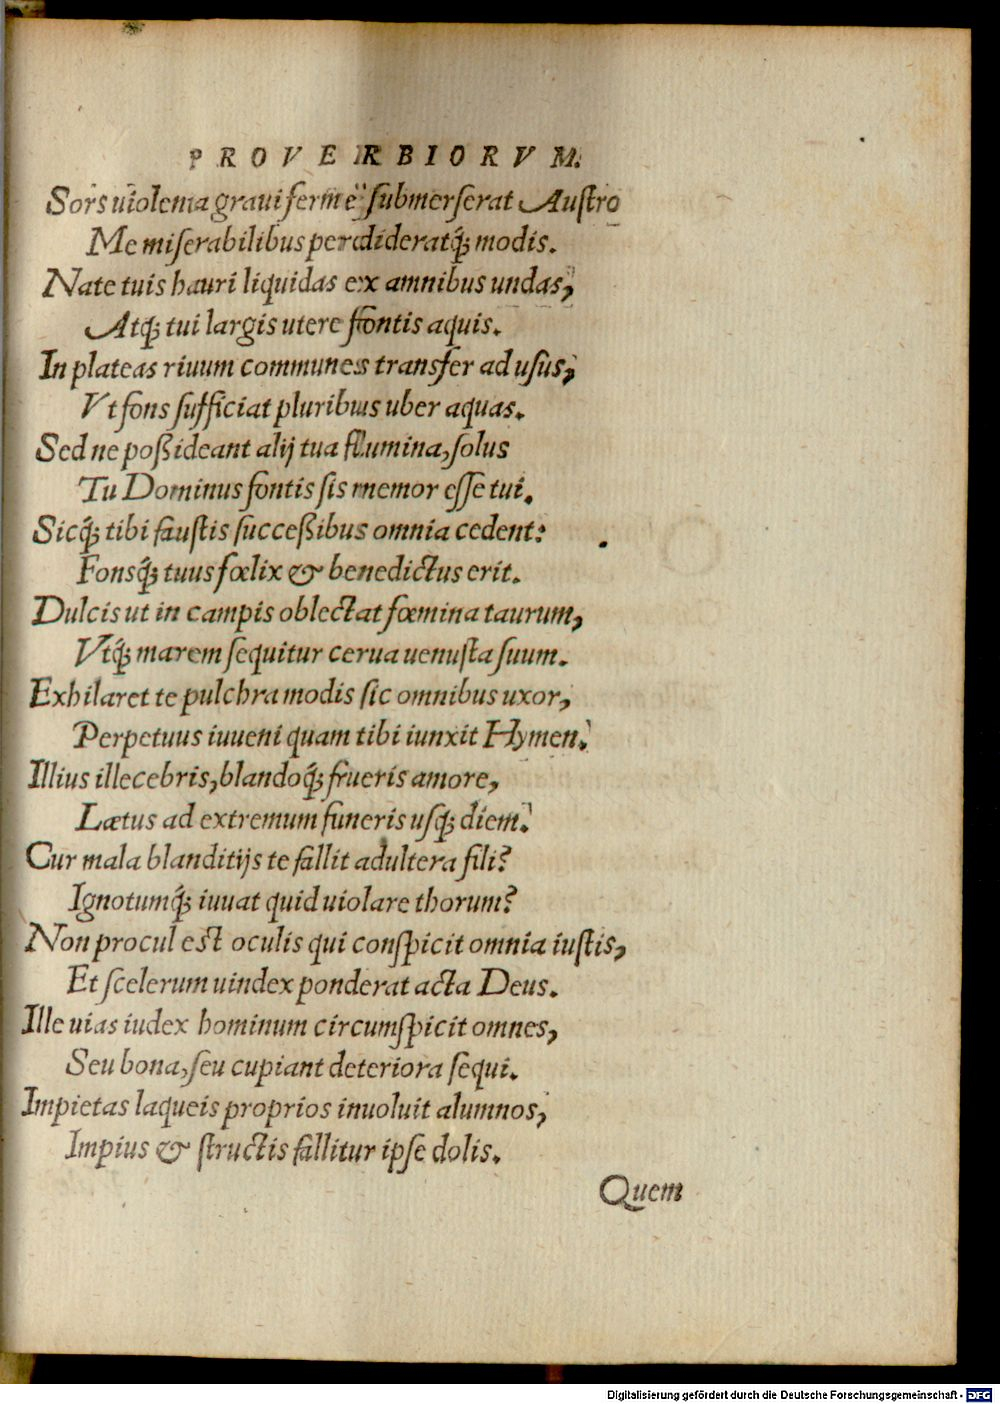 PROVERBIORVM.
Sors uiolenta graui fermè submerserat Austro
Me miserabilibus perdideratq́; modis.
Nate tuis hauri liquidas ex amnibus undas,
Atq; tui largis utere fontis aquis.
In plateas riuum communes transfer ad usus,
Vt fons sufficiat pluribus uber aquas.
Sed ne poßideant alij tua flumina, solus
Tu Dominus fontis sis memor esse tui.
Sicq́; tibi faustis succeßibus omnia cedent:
Fonsq́; tuus fœlix & benedictus erit.
Dulcis ut in campis oblectat fœmina taurum,
Vtq́; marem sequitur cerua uenusta suum.
Exhilaret te pulchra modis sic omnibus uxor,
Perpetuus iuueni quam tibi iunxit Hymen.
Illius illecebris, blandoq́; frueris amore,
Lætus ad extremum funeris usq; diem.
Cur mala blanditijs te fallit adultera fili?
Ignotumq́; iuuat quid uiolare thorum?
Non procul est oculis qui conspicit omnia iustis,
Et scelerum uindex ponderat acta Deus.
Ille uias iudex hominum circumspicit omnes,
Seu bona, seu cupiant deteriora sequi.
Impietas laqueis proprios inuoluit alumnos,
Impius & structis fallitur ipse dolis.
Quem
Digitalisierung gefördert durch die Deutsche Forschungsgemeinschaft - DFG